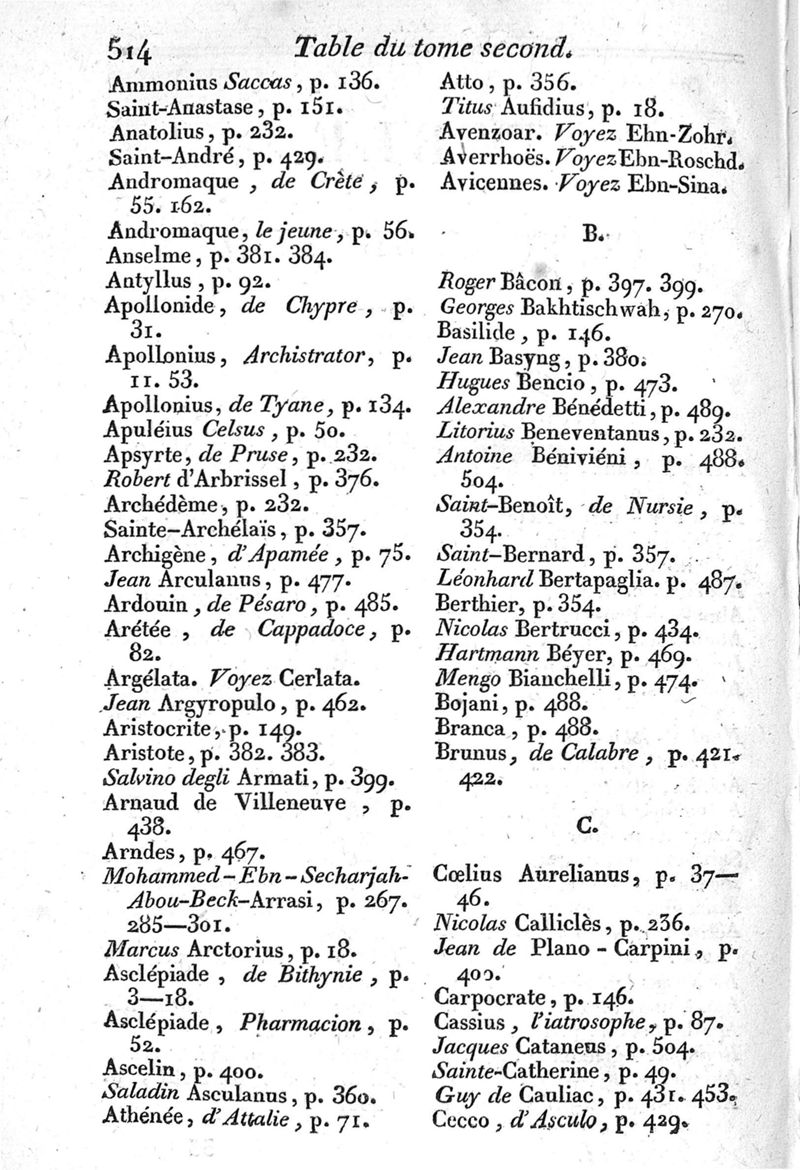 514 Table du tome second.
Ammonius Saccas, p. 136.
Saint-Anastase, p. 151.
Anatolius, p. 232.
Saint-André, p. 429.
Andromaque, de Crète, p.
55. 162.
Andromaque, le jeune, p. 56.
Anselme, p. 381. 384.
Antyllus, p. 92.
Apollonide, de Chypre, p.
31.
Apollonius, Archistrator, p.
11. 53.
Apollonius, de Tyane, p. 134.
Apuléius Celsus, p. 50.
Apsyrte, de Pruse, p. 232.
Robert d'Arbrissel, p. 376.
Archédème, p. 232.
Sainte-Archélaïs, p. 357.
Archigène, d'Apamée, p. 75.
Jean Arculanus, p. 477.
Ardouin, de Pésaro, p. 485.
Arétée, de Cappadoce, p.
82.
Argélata. Voyez Cerlata.
Jean Argyropulo, p. 462.
Aristocrite, p. 149.
Aristote, p. 382. 383.
Salvino degli Armati, p. 399.
Arnaud de Villeneuve, p.
438.
Arndes, p. 467.
Mohammed-Ebn-Secharjah-
Abou-Beck-Arrasi, p. 267.
285—301.
Marcus Arctorius, p. 18.
Asclépiade, de Bithynie, p.
3—18.
Asclépiade, Pharmacion, p.
52.
Ascelin, p. 400.
Saladin Asculanus, p. 360.
Athénée, d'Attalie, p. 71.
Atto, p. 356.
Titus Aufidius, p. 18.
Avenzoar. Voyez Ehn-Zohr.
Averrhoës. Voyez Ebn-Roschd.
Avicennes. Voyez Ebn-Sina.
B.
Roger Bâcon, p. 397. 399.
Georges Bakhtischwah, p. 270.
Basilide, p. 146.
Jean Basyng, p. 380.
Hugues Bencio, p. 473.
Alexandre Bénédetti, p. 489.
Litorius Beneventanus, p. 232.
Antoine Béniviéni, p. 488.
504.
Saint-Benoît, de Nursie, p.
354.
Saint-Bernard, p. 357.
Léonhard Bertapaglia. p. 487.
Berthier, p. 354.
Nicolas Bertrucci, p. 434.
Hartmann Béyer, p. 469.
Mengo Bianchelli, p. 474.
Bojani, p. 488.
Branca, p. 488.
Brunus, de Calabre, p. 421.
422.
C.
Cœlius Aurelianus, p. 37—
46.
Nicolas Calliclès, p. 236.
Jean de Plano-Carpini, p.
400.
Carpocrate, p. 146.
Cassius, l'iatrosophe, p. 87.
Jacques Cataneus, p. 504.
Sainte-Catherine, p. 49.
Guy de Cauliac, p. 431. 453.
Cecco, d'Asculo, p. 429.